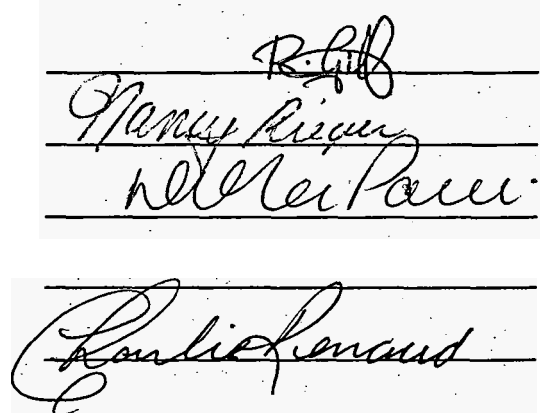 R. Gill
Nancy Rieger
Charlie Renaud